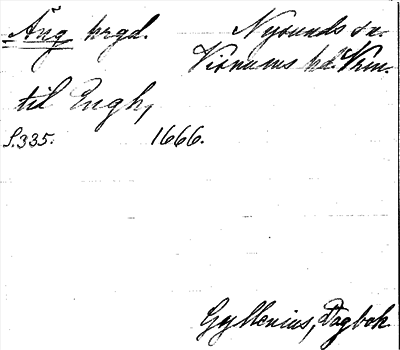 Äng hrgd. Nysunds sn.
Visnums hd. Vrm.
til Engh,
S. 335. 1666.
Gyllenius, Dagbok